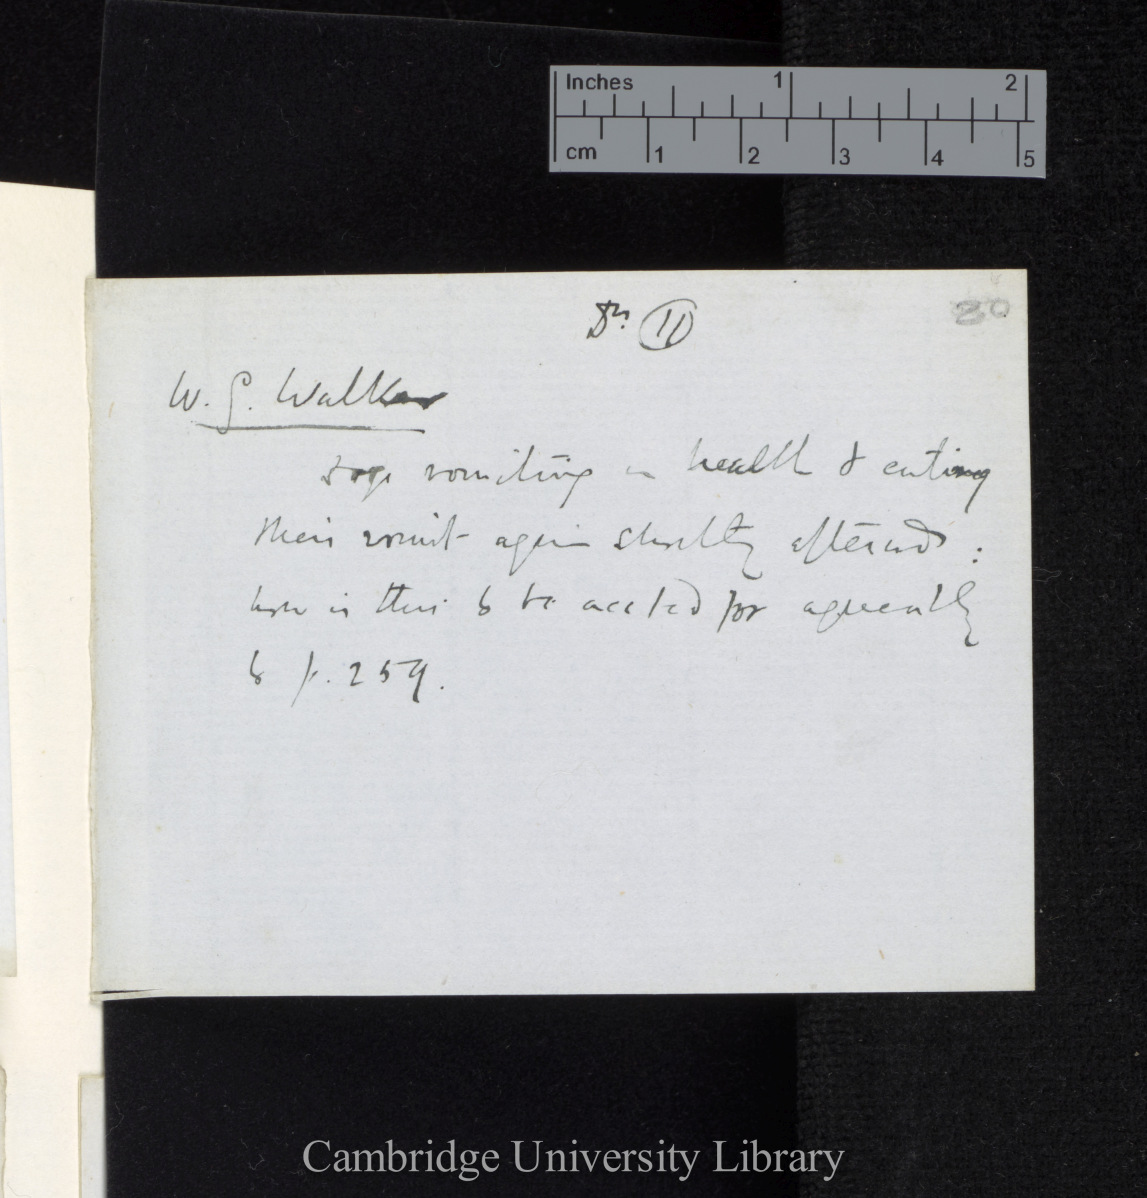 Inches 1 2
cm 1 2 3 4 5
11
30
W. G. Walker
dogs vomiting in health & eating
their vomit again shortly afterwards:
how is this to be accted for agreeably
to p. 259.
Cambridge University Library